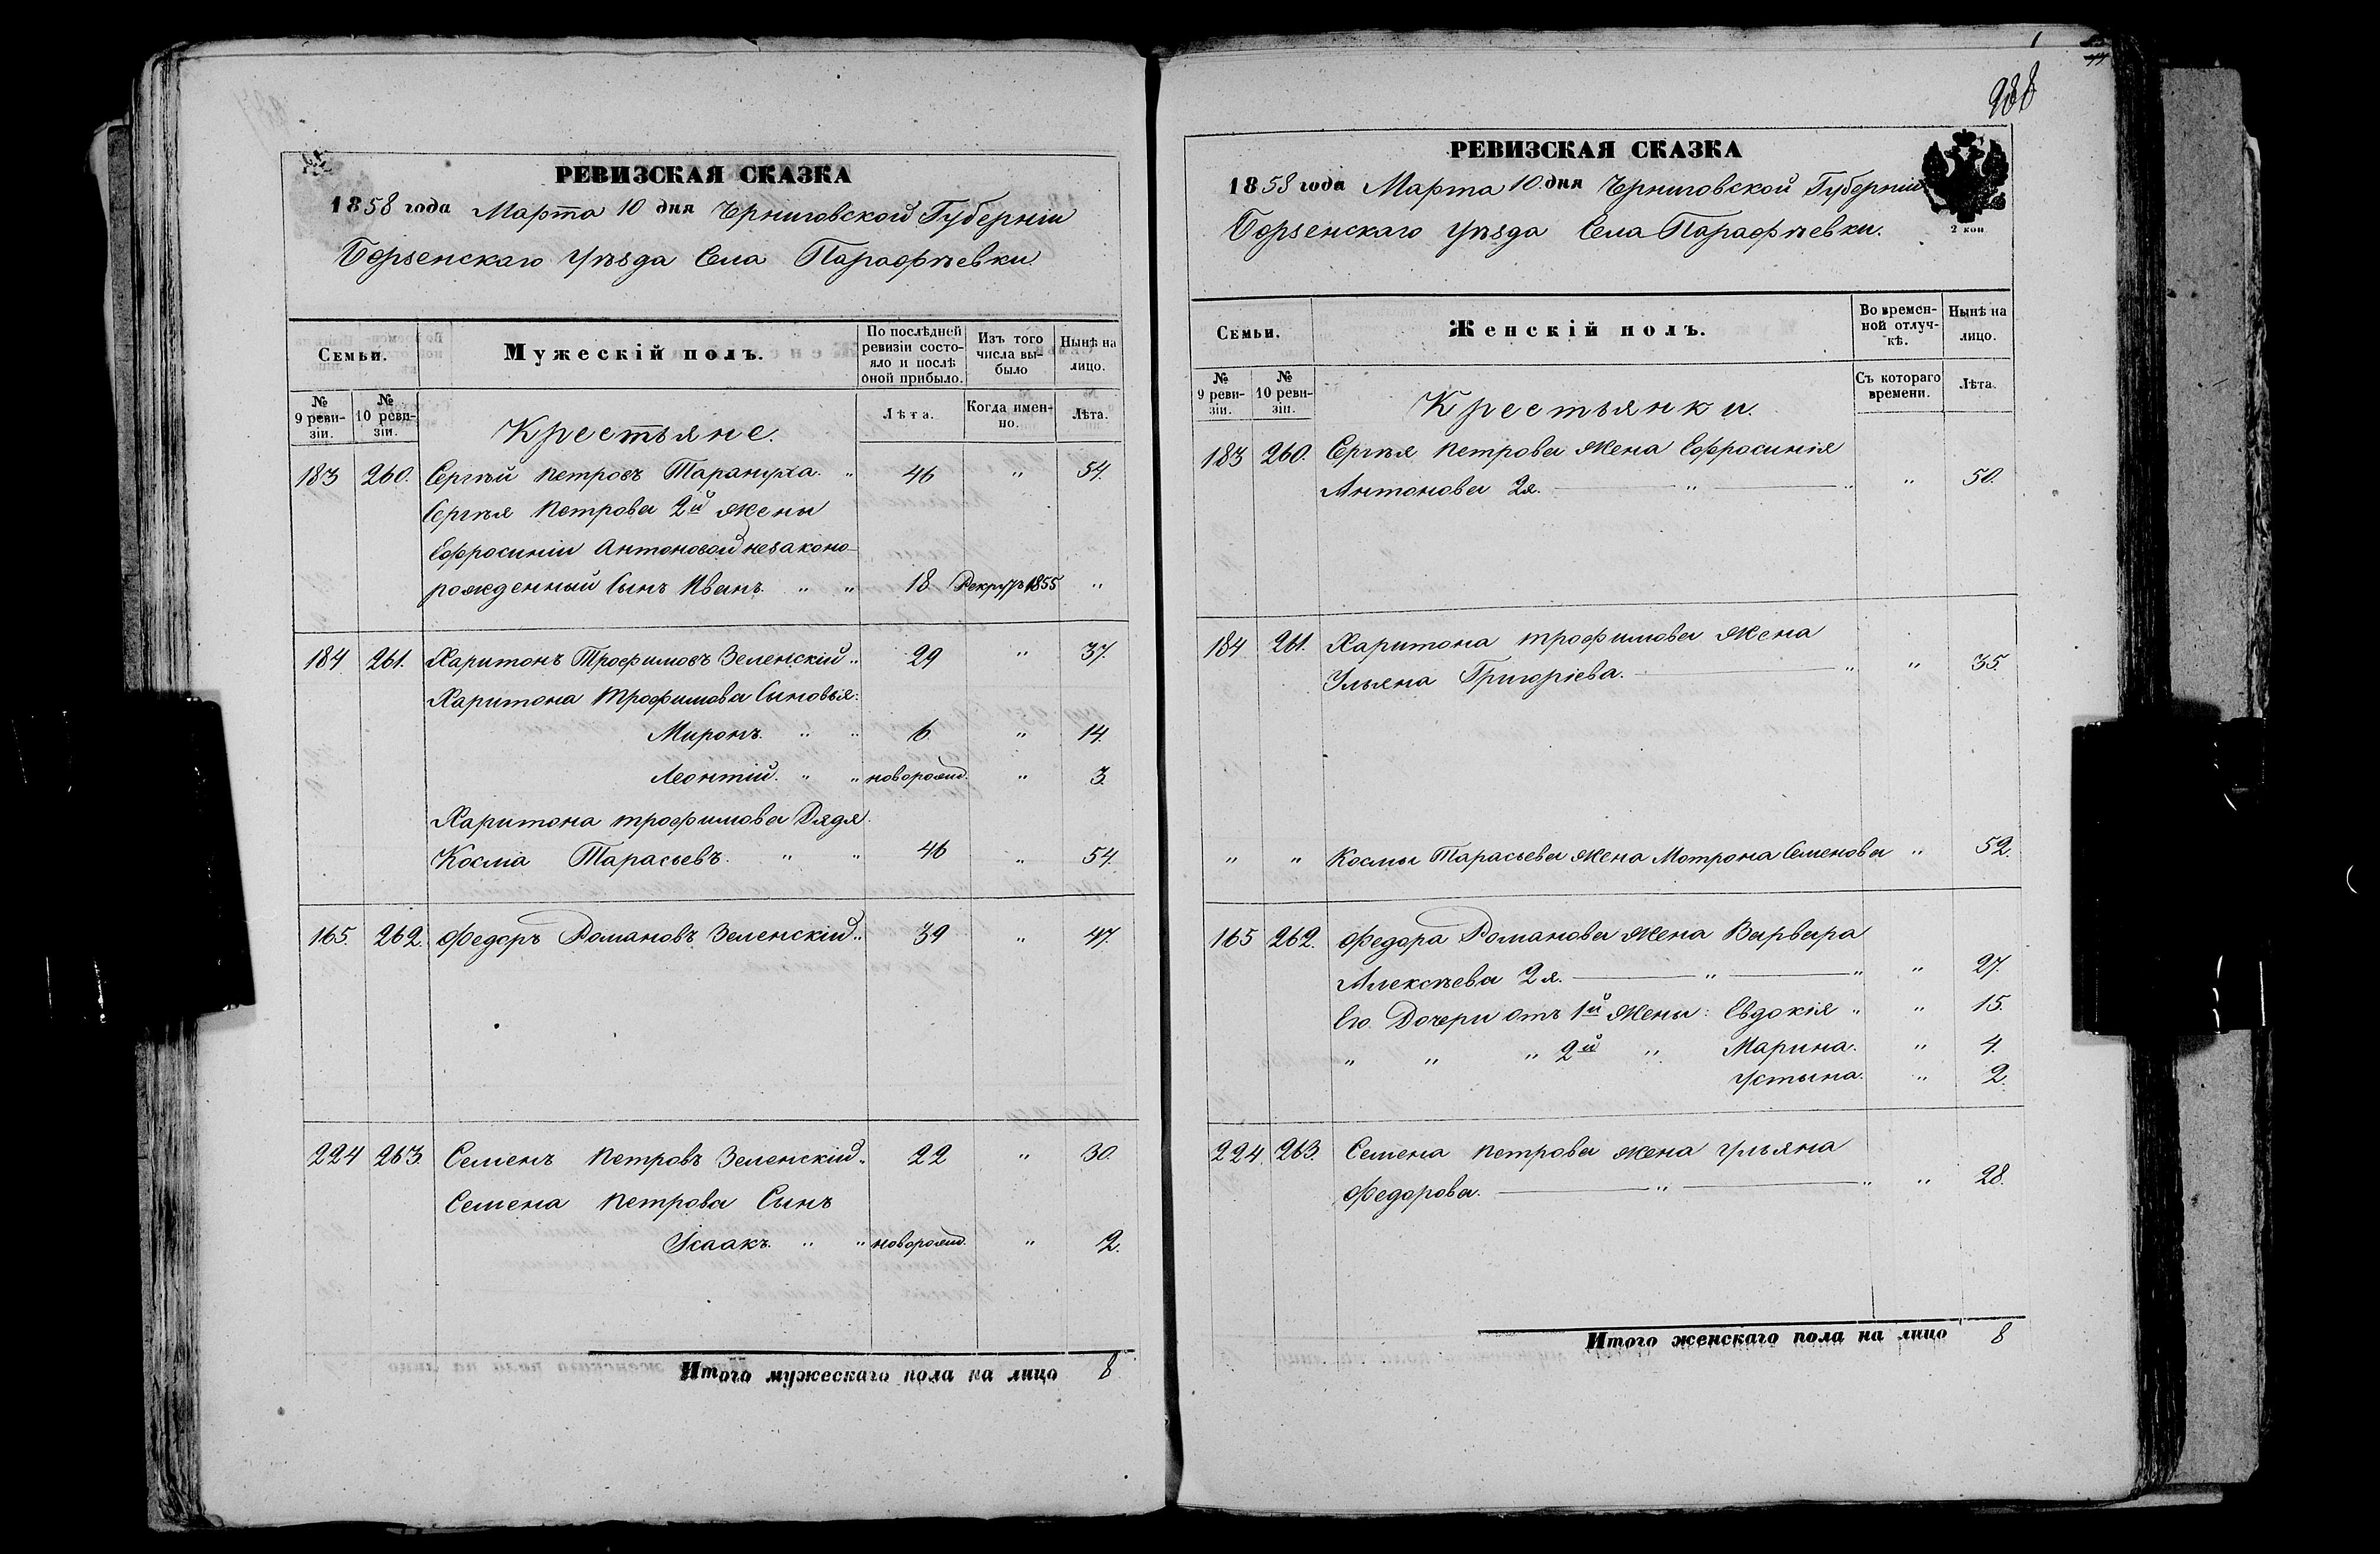 РЕВИЗСКАЯ СКАЗКА
1858 года Марта 10 дня Черниговской Губерніи
Борзенскаго Уѣзда Села Парафѣевки
Семьи.
Мужескій полъ.
По послѣдней ревизіи состояло и послѣ оной прибыло.
Изъ того числа выбыло
Нынѣ на лицо.
№ 9 ревизіи.
№ 10 ревизіи.
Крестьяне.
Лѣта.
Когда именно.
Лѣта.
183 260. Сергѣй Петровъ Тарануха. " 46 " 54.
Сергѣя Петрова 2й Жены
Ефросиніи Антоновой незаконо-
рожденный Сынъ Иванъ. " " 18 Рекрутъ 1855 "
184 261. Харитонъ Трофимовъ Зеленскій " 29 " 37.
Харитона Трофимова Сыновья:
Миронъ. " " 6 " 14.
Леонтій. " " новорожд. " 3.
Харитона Трофимова Дядя
Косма Тарасьевъ. " " 46 " 54.
165. 262. Федоръ Романовъ Зеленскій " 39 " 47.
224 263. Семенъ Петровъ Зеленскій " 22 " 30.
Семена Петрова Сынъ
Исаакъ. " " новорожд. " 2.
Итого мужескаго пола на лицо 8
288
РЕВИЗСКАЯ СКАЗКА
1858 года Марта 10 дня Черниговской Губерніи
Борзенскаго Уѣзда Села Парафѣевки.
2 коп
Семьи.
Женскій полъ.
Во временной отлучкѣ.
Нынѣ на лицо.
№ 9 ревизіи.
№ 10 ревизіи.
Крестьянки.
Съ котораго времени.
Лѣта.
183 260. Сергѣя Петрова Жена Ефросинія
Антонова 2я. " " " 50.
184 261. Харитона Трофимова Жена
Ульяна Григоріева. " " 35.
" " Космы Тарасьева Жена Мотрона Семенова " 52.
165 262. Федора Романова Жена Варвара
Алексѣева 2я. " " " 27.
Его Дочери отъ 1й Жены: Евдокія " " 15.
" " " 2й " Марина. " 4.
Устына. " 2.
224. 263. Семена Петрова Жена Ульяна
Федорова. " " " 28.
Итого женскаго пола на лицо 8